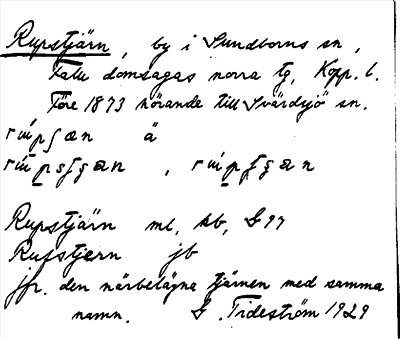 Rupstjärn, by i Sundborns sn,
Falu domsagas norra tg, Kopp. l.
Före 1873 hörande till Svärdsjö sn.
ä
Rupstjärn ml, kb, G 97
Rufstjern jb
jfr. den närbelägna tjärnen med samma
namn. G. Tideström 1929